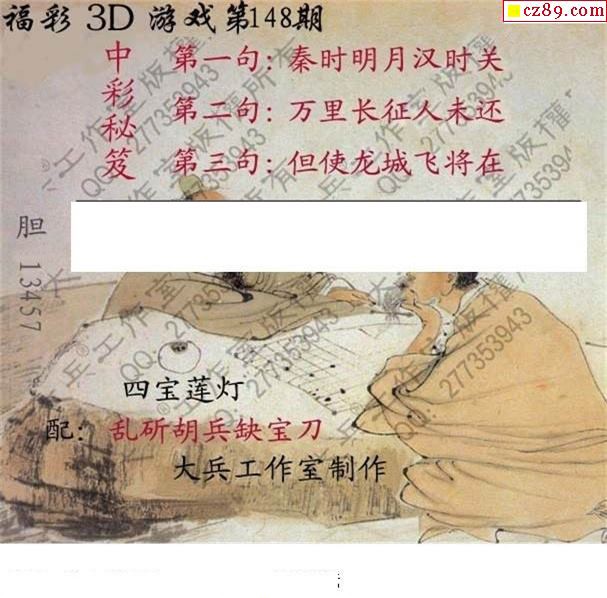 福彩 3D 游戏第148期
cz89.com
中彩秘笈
第一句：秦时明月汉时关
第二句：万里长征人未还
第三句：但使龙城飞将在
胆 13457
四宝莲灯
配：乱斫胡兵缺宝刀
大兵工作室制作
大兵®工作室版权所有
QQ：277353943